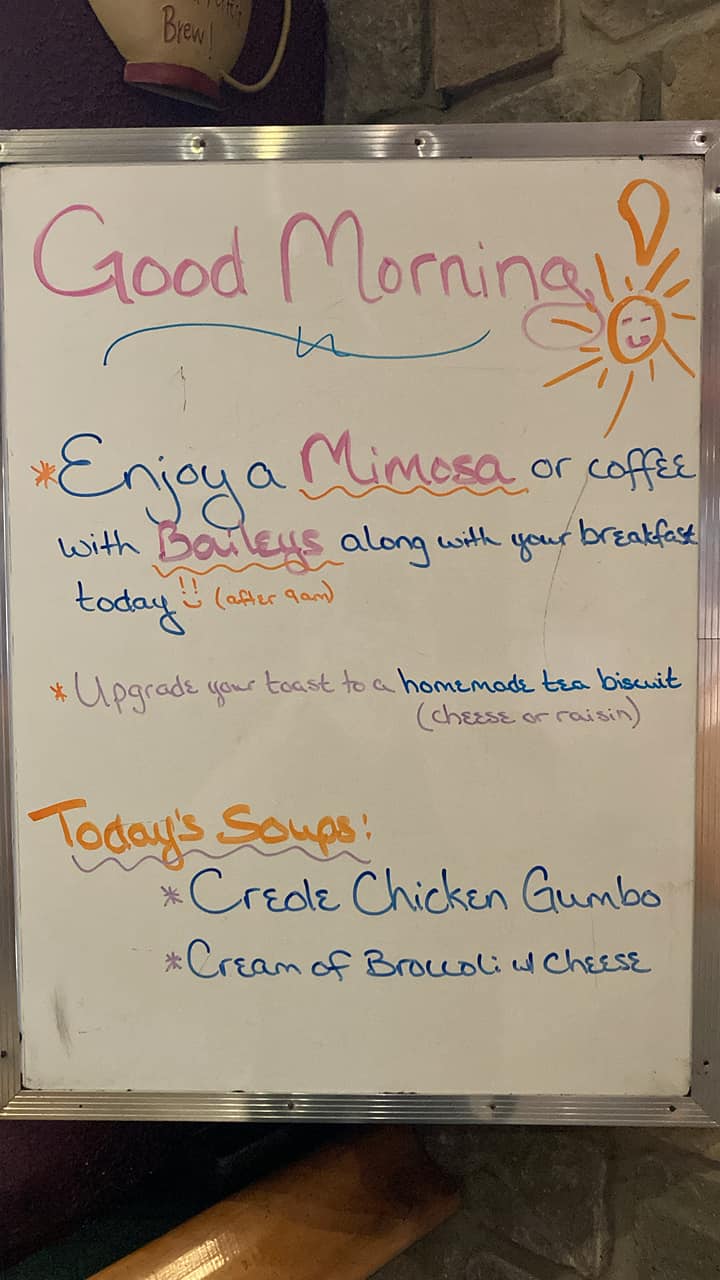 Brew!
Good Morning!
*Enjoy a Mimosa or coffee
with Baileys along with your breakfast
today!! (after 9am)
*Upgrade your toast to a homemade tea biscuit
(cheese or raisin)
Today's Soups:
*Creole Chicken Gumbo
*Cream of Broccoli w/ Cheese